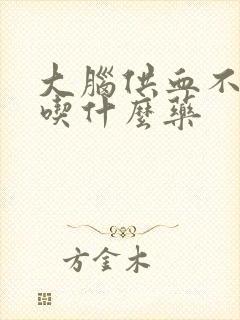 大腦供血不
喫什麼藥
方金木